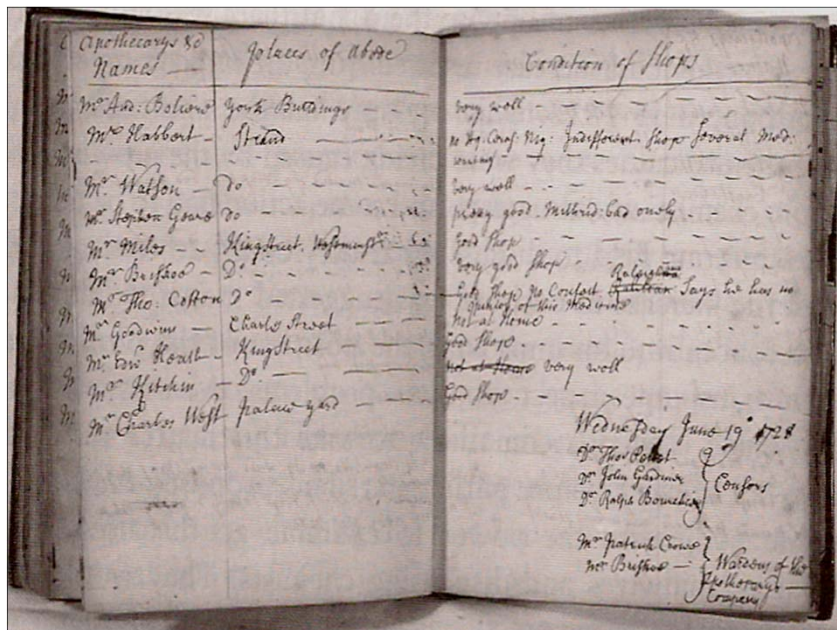 Apothecarys &c
Names —
places of abode
Condition of Shops
Mr And: York Buildings very well
Mr Habbert Strand no Conf: Indifferent Shop Several Med:
Mr Watson Do very well
Mr Stephen Do prety good. Mithrid: bad onely
Mr Miles KingStreet. Good Shop
Mr Briscoe Do very good Shop
Mr Tho: Cotton Do Good Shop No Confect Says he has no
of this Medicine
Mr Goodwin Charles Street not at home
Mr Edwd Heath KingStreet Good Shop
Mr Kitchin Do not at home very well
Mr Charles West palace yard Good Shop
Wednesday June 19 1728
Dr Thos Pellet
Dr John Gardiner
Dr Ralph
Censors
Mr patrick Crowe
Mr Briscoe
Wardens of the
Apothecarys
Company